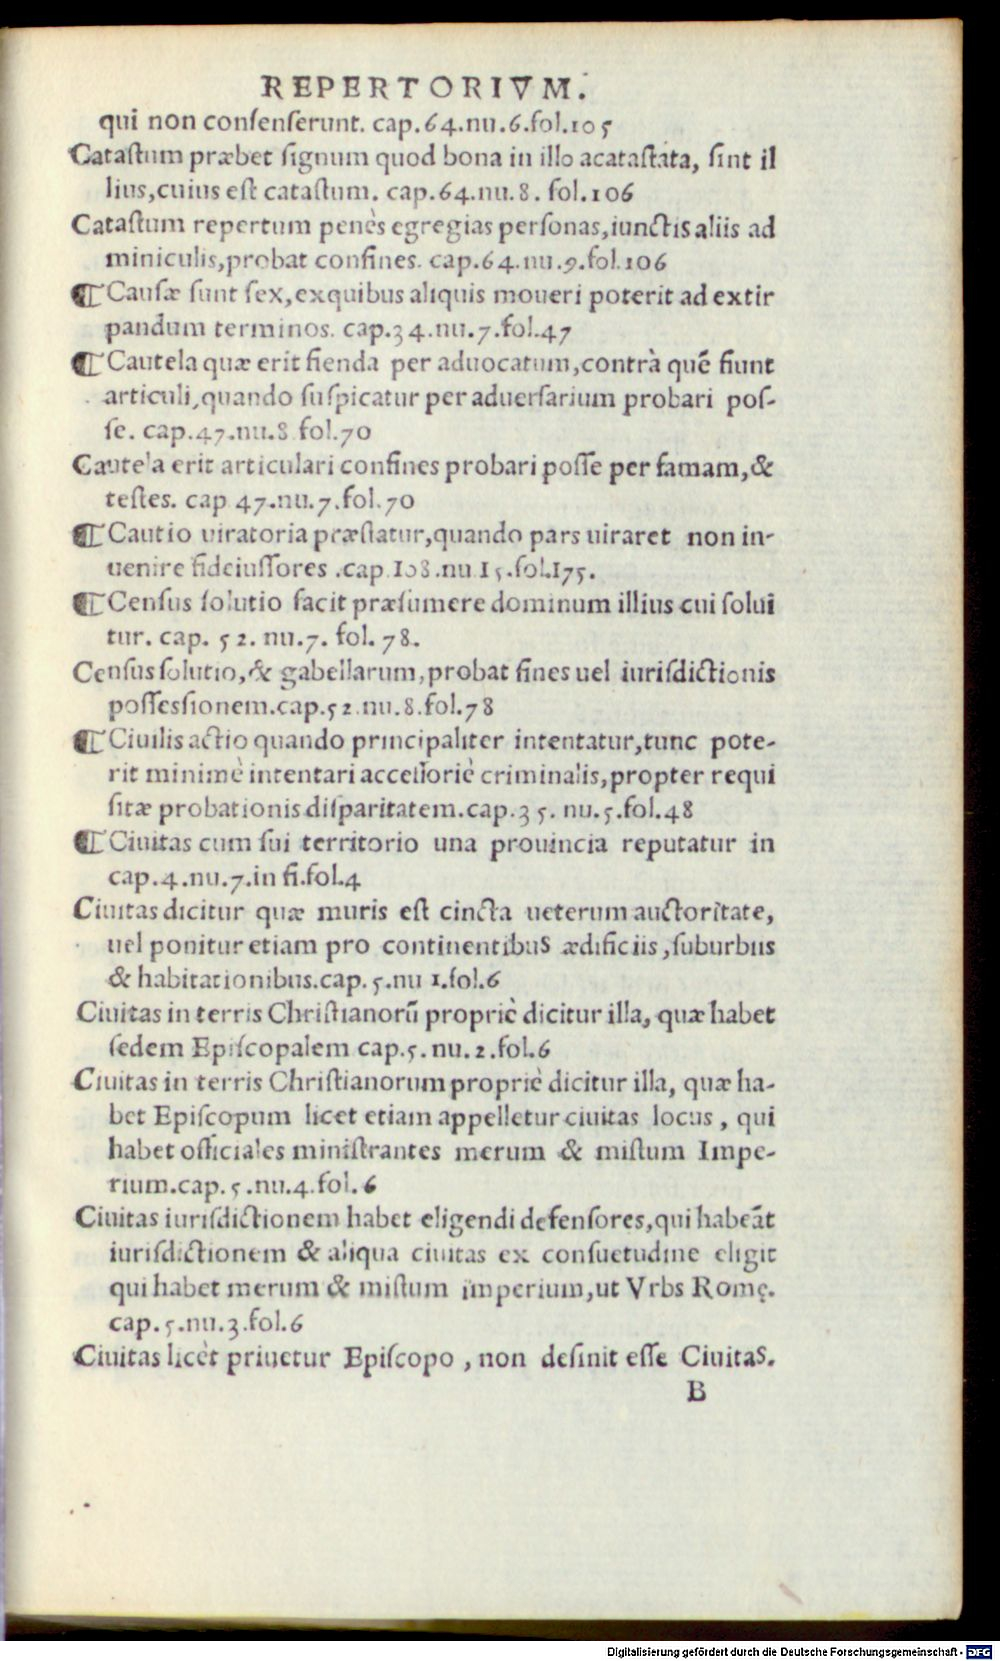 REPERTORIVM.
qui non conſenſerunt. cap.64.nu.6.fol.105
Cataſtum præbet ſignum quod bona in illo acataſtáta, ſint il
lius,cuius eſt cataſtum. cap.64.nu.8. fol.106
Cataſtum repertum penès egregias perſonas,iunctis aliis ad
miniculis,probat confines. cap.64.nu.9.fol.106
¶ Cauſæ ſunt ſex,exquibus aliquis moueri poterit ad extir
pandum terminos. cap.34.nu.7.fol.47
¶ Cautela quæ erit fienda per aduocatum,contrà quẽ fiunt
articuli,quando ſuſpicatur per aduerſarium probari poſ-
ſe. cap.47.nu.8.fol.70
Cautela erit articulari confines probari poſſe per famam,&
teſtes. cap 47.nu.7.fol.70
¶ Cautio uiratoria præſtatur,quando pars uiraret non in-
uenire fideiuſſores .cap.108.nu.15.fol.175.
¶ Cenſus ſolutio facit præſumere dominum illius cui ſolui
tur. cap. 52. nu.7. fol. 78.
Cenſus ſolutio,& gabellarum,probat fines uel iuriſdictionis
poſſeſsionem.cap.52.nu.8.fol.78
¶ Ciuilis actio quando principaliter intentatur,tunc pote-
rit minimè intentari acceſſoriè criminalis,propter requi
ſitæ probationis diſparitatem.cap.35. nu.5.fol.48
¶ Ciuitas cum ſui territorio una prouincia reputatur in
cap.4.nu.7.in fi.fol.4
Ciuitas dicitur quæ muris eſt cincta ueterum auctoritate,
uel ponitur etiam pro continentibus ædificiis,ſuburbiis
& habitationibus.cap.5.nu 1.fol.6
Ciuitas in terris Chriſtianorũ propriè dicitur illa, quæ habet
ſedem Epiſcopalem cap.5.nu.2.fol.6
Ciuitas in terris Chriſtianorum propriè dicitur illa, quæ ha-
bet Epiſcopum licet etiam appelletur ciuitas locus, qui
habet officiales miniſtrantes merum & miſtum Impe-
rium.cap.5.nu.4.fol.6
Ciuitas iuriſdictionem habet eligendi defenſores,qui habeãt
iuriſdictionem & aliqua ciuitas ex conſuetudine eligit
qui habet merum & miſtum imperium,ut Vrbs Romę.
cap.5.nu.3.fol.6
Ciuitas licèt priuetur Epiſcopo, non deſinit eſſe Ciuitas.
B
Digitalisierung gefördert durch die Deutsche Forschungsgemeinschaft - DFG